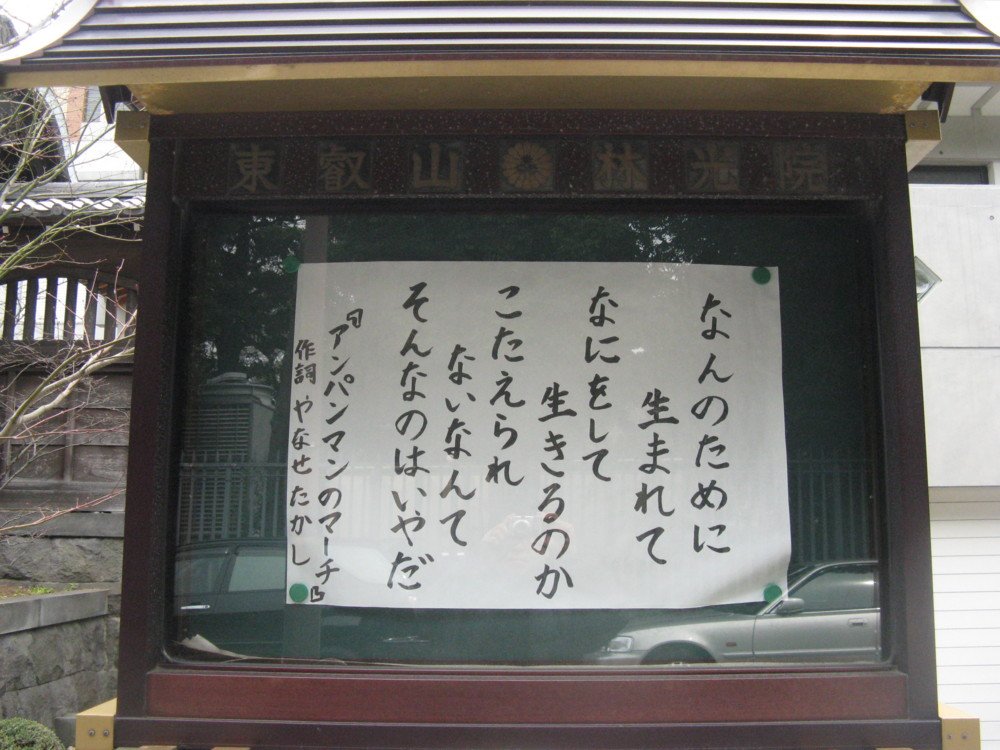 東叡山 林光院
なんのために
生まれて
なにをして
生きるのか
こたえられ
ないなんて
そんなのはいやだ
『アンパンマンのマーチ』
作詞 やなせたかし